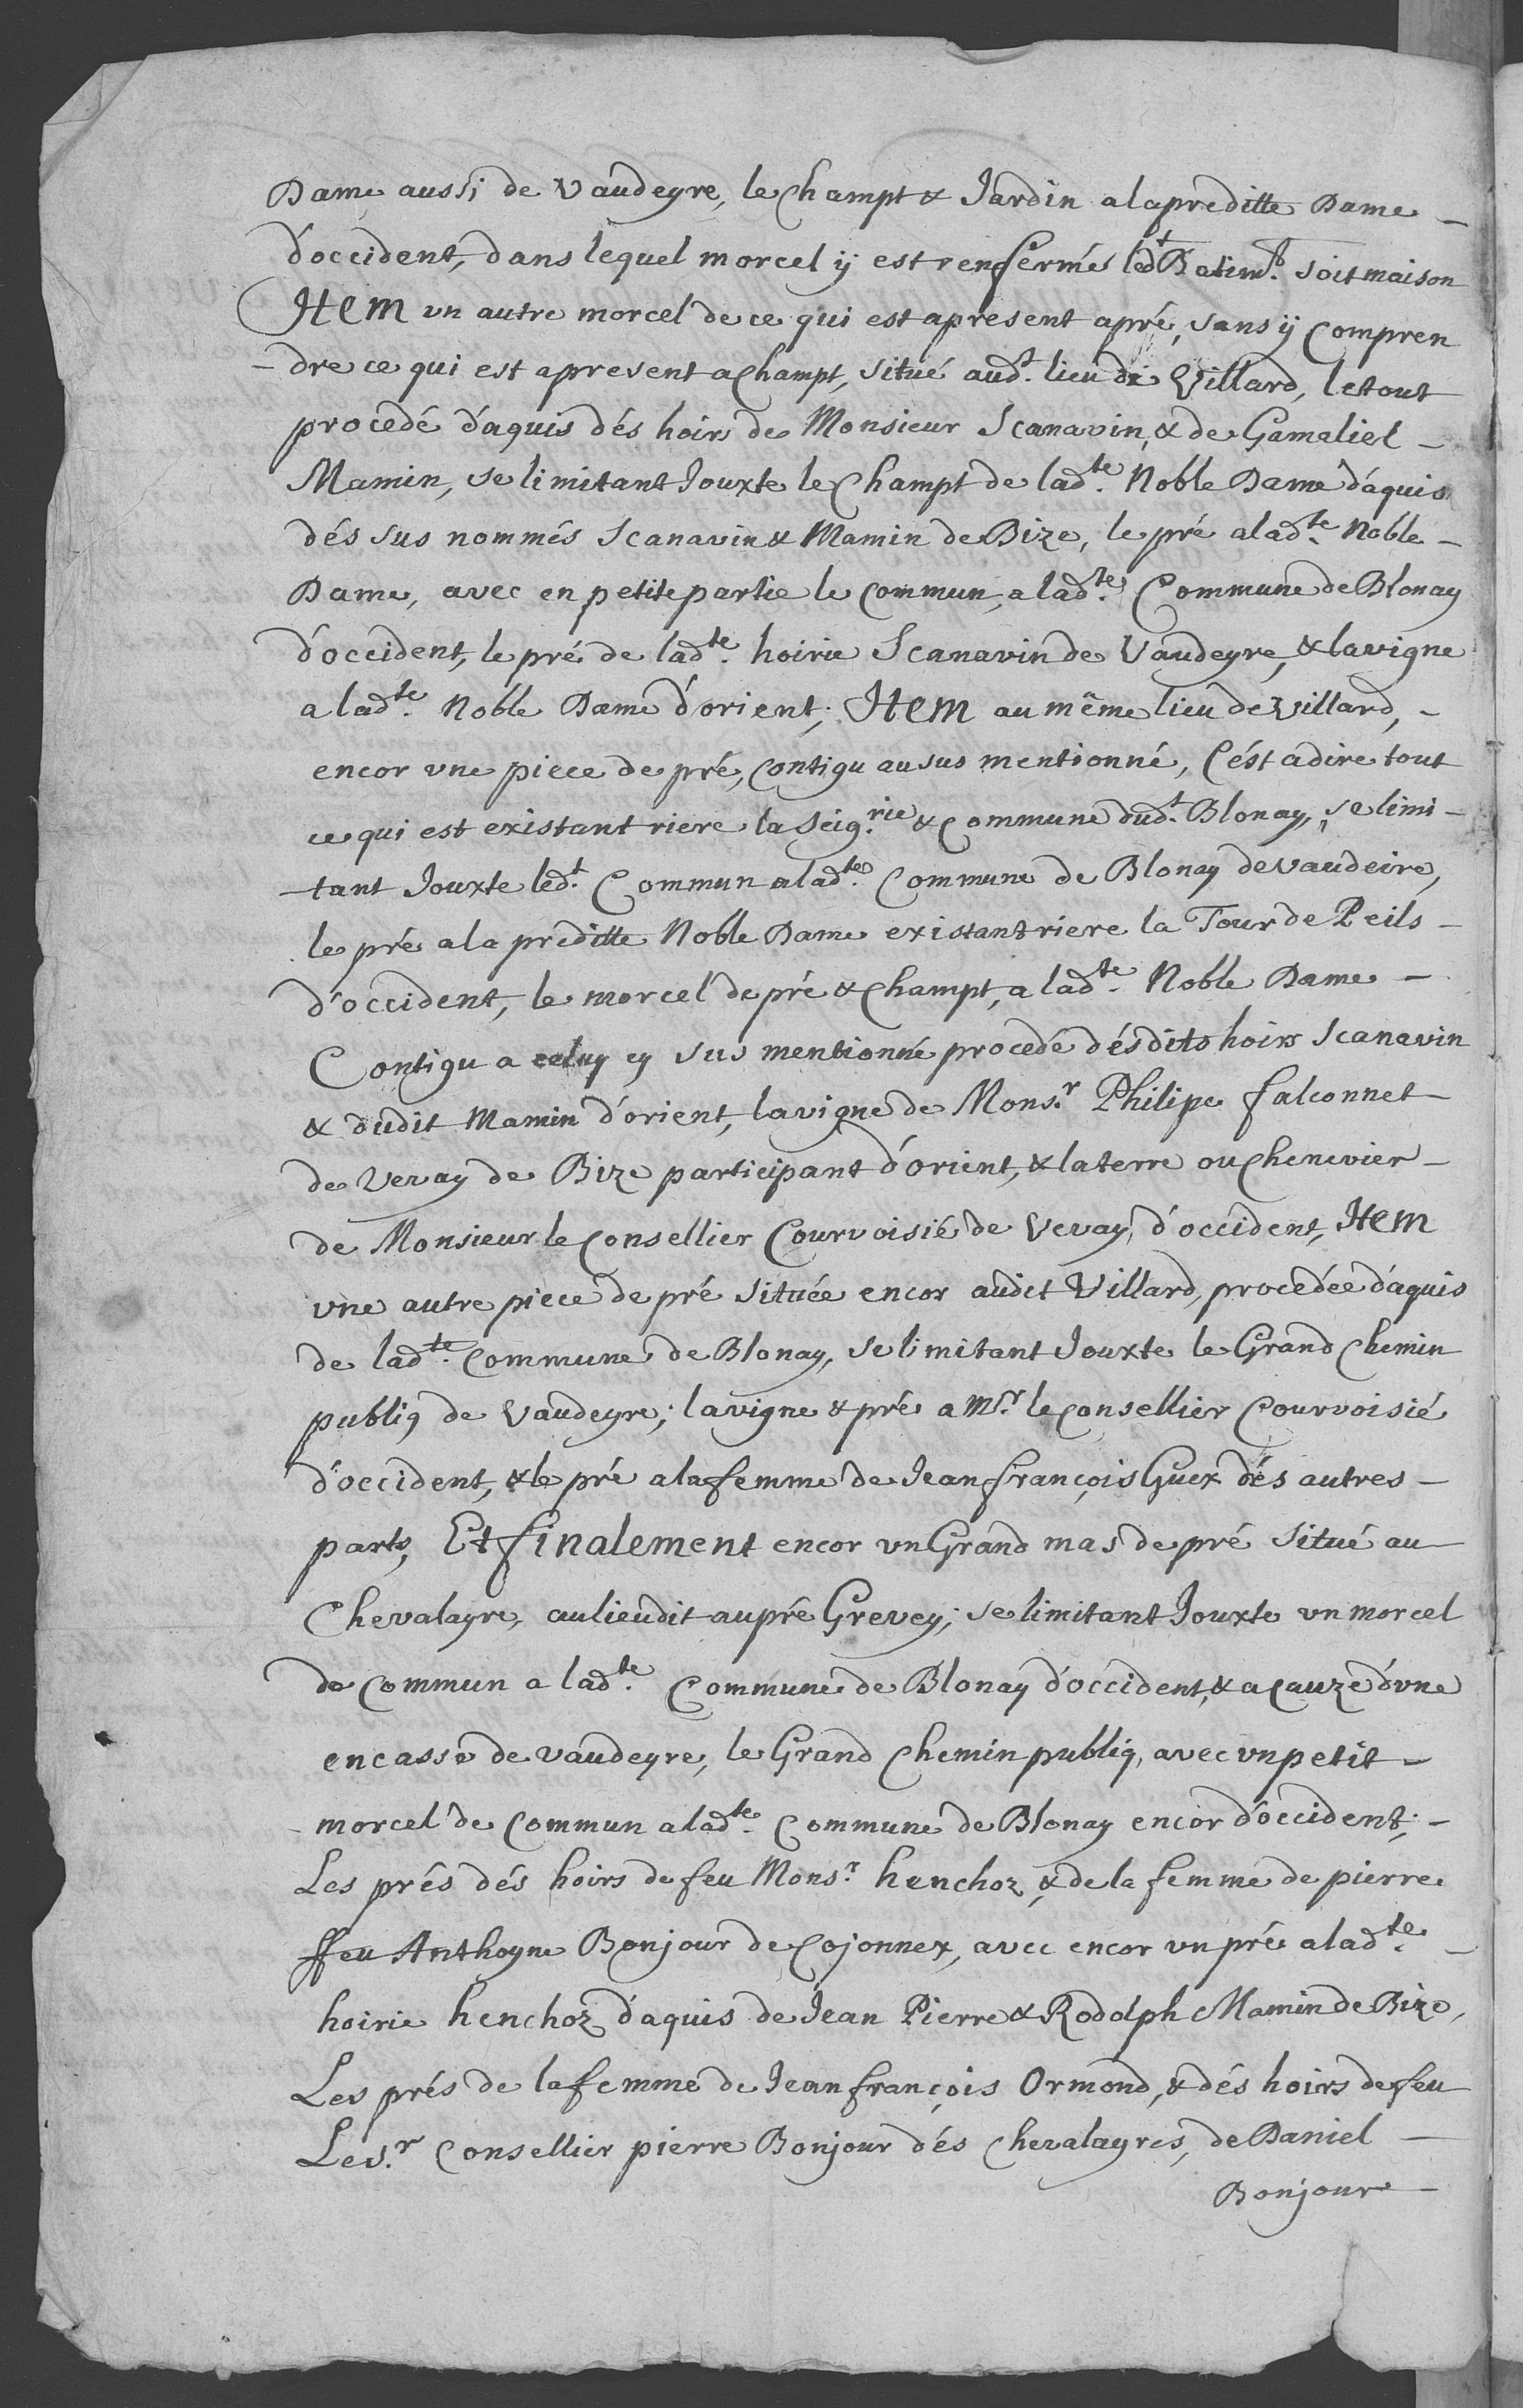 Dame aussi de Vaudeyre, le Champt & Jardin a la preditte Dame -
d'occident, dans lequel morcel ÿ est renfermés led.t Batim.t soit maison
Item un autre morcel de ce qui est apresent a pré, sans ÿ Compren
- dre ce qui est apresent a Champt, situé aud.t lieu de Villard, le tout
procedé d'aquis dés hoirs de Monsieur Scanavin, & de Gamaliel -
Mamin, se limitant Jouxte le Champt de lad.te Noble Dame d'aquis
dés sus nommés Scanavin & Mamin de Bize, le pré a lad.te Noble -
Dame, avec en petite partie le Commun, a lad.te Commune de Blonay
d'occident, le pré de lad.te hoirie Scanavin de Vaudeyre, & la vigne
a lad.te Noble Dame d'orient; Item au même lieu de Villard, -
encor une piece de pré, Contigu au sus mentionné, C'ést a dire tout
ce qui est existant riere la Seig.rie & Commune dud.t Blonay, se limi -
- tant Jouxte led.t Commun a lad.te Commune de Blonay de vaudeire,
le pré a la preditte Noble Dame existant riere la Tour de Peils -
d'occident, le morcel de pré & Champt, a lad.te Noble Dame -
Contigu a celuy cy sus mentionné procedé désdits hoirs Scanavin
& dudit Mamin d'orient, la vigne de Mons.r Philipe falconnet -
de Vevay de Bize participant d'orient, & la terre ou Chenevier -
de Monsieur le Consellier Courvoisié de Vevay, d'occident, Item
une autre piece de pré située encor audit Villard, procedée d'aquis
de lad.te Commune de Blonay, se limitant Jouxte le Grand Chemin
publiq de Vaudeyre; la vigne & pré a M.r le Consellier Courvoisié
d'occident, & le pré a la femme de Jean françois Guex dés autres -
parts, Et finalement encor un Grand mas de pré situé au
Chevalayre, au lieu dit au pré Grevey; se limitant Jouxte un morcel
de Commun a lad.te Commune de Blonay d'occident, & a cauze d'une
encasse de vaudeyre, le Grand Chemin publiq, avec un petit -
morcel de Commun a lad.te Commune de Blonay encor d'occident; -
Les prés dés hoirs de feu Mons.r henchoz, & de la femme de pierre
ffeu Anthoyne Bonjour de Cojonnex, avec encor un pré a lad.te -
hoirie henchoz d'aquis de Jean Pierre & Rodolph Mamin de Bize,
Les prés de la femme de Jean françois Ormond, & dés hoirs de feu
Le s.r Consellier pierre Bonjour dés Chevalayres, de Daniel -
Bonjour -